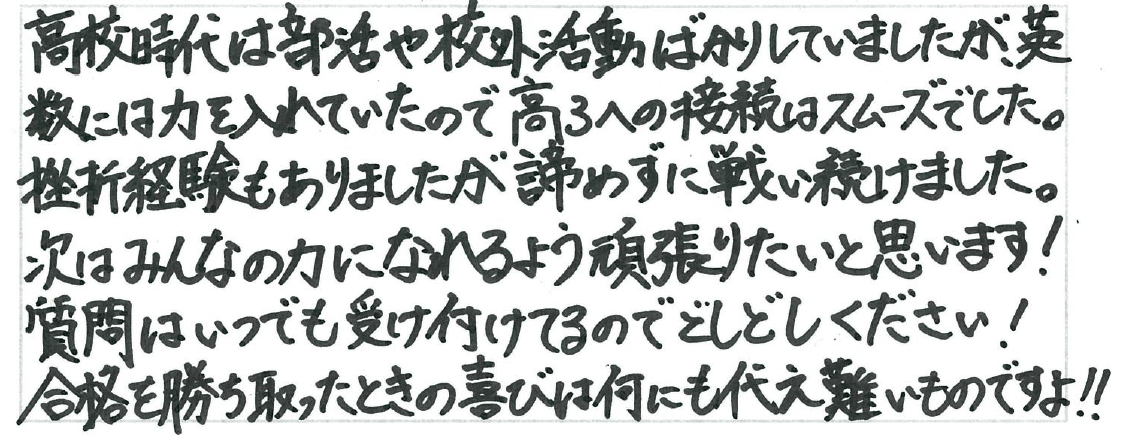 高校時代は部活や校外活動ばかりしていましたが、英
数には力を入れていたので高3への接続はスムーズでした。
挫折経験もありましたが諦めずに戦い続けました。
次はみんなの力になれるよう頑張りたいと思います！
質問はいつでも受け付けてるのでどしどしください！
合格を勝ち取ったときの喜びは何にも代え難いものですよ!!